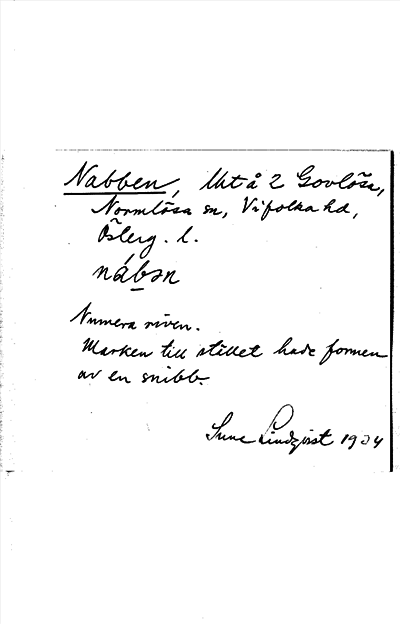 Nabben, Utå 2 Govlösa,
Normlösa sn, Vifolka hd,
Österg. l.
nábən
Numera riven.
Marken till stället hade formen
av en snibb.
Sune Lindqvist 1924